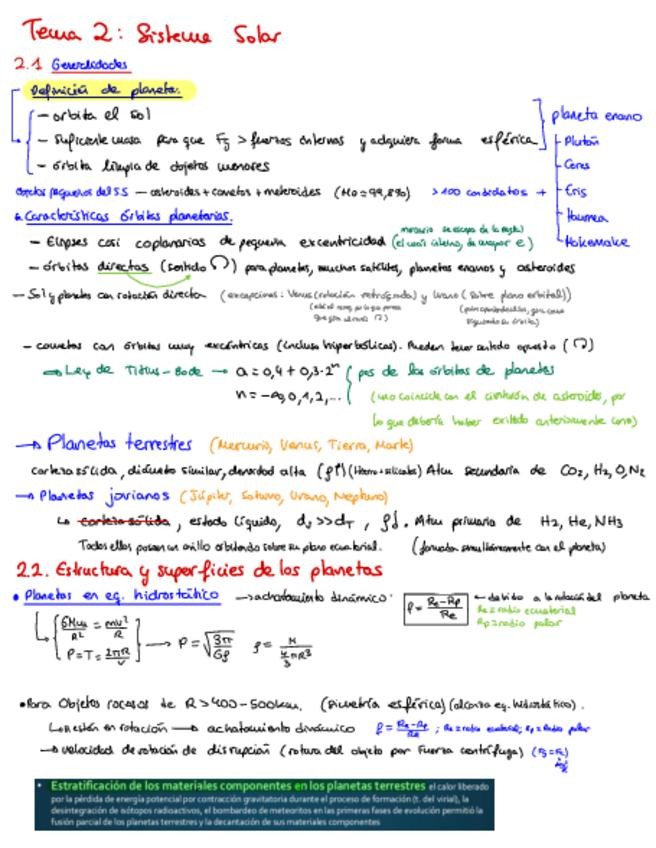 Tema 2: Sistema Solar
2.1 Generalidades
Definición de planeta:
- orbita el sol
- suficiente masa para que Fg > fuerzas internas y adquiera forma esférica
- órbita limpia de objetos menores
planeta enano
Plutón
Ceres
Eris
Haumea
Makemake
objetos pequeños del S.S - asteroides + cometas + meteroides (Mo = 99,8%) >100 candidatos +
Características órbitas planetarias.
- Elipses casi coplanarias de pequeña excentricidad (mercurio se escapa de la regla) (el más interno, de mayor e)
- órbitas directas (sentido ↺) para planetas, muchos satélites, planetas enanos y asteroides
- Sol y planetas con rotación directa (excepciones: Venus (rotación retrógrada) y Urano (sobre plano orbital))
- cometas con órbitas muy excéntricas (incluso hiperbólicas). Pueden tener sentido opuesto (↻)
⇒ Ley de Titius-Bode → a = 0,4 + 0,3·2ⁿ pos de las órbitas de planetas
n = -∞, 0, 1, 2, ... (uno coincide con el cinturón de asteroides, por
lo que debería haber existido anteriormente uno)
→ Planetas terrestres (Mercurio, Venus, Tierra, Marte)
corteza sólida, diámetro similar, densidad alta (ρ↑) (Hierro + silicatos) Atm secundaria de CO₂, H₂O, N₂
→ Planetas jovianos (Júpiter, Saturno, Urano, Neptuno)
↳ corteza sólida, estado líquido, dⱼ >> d_T, ρ↓. Atm primaria de H₂, He, NH₃
Todos ellos poseen un anillo orbitando sobre su plano ecuatorial. (formada simultáneamente con el planeta)
2.2. Estructura y superficies de los planetas
• Planetas en eq. hidrostático → achatamiento dinámico: f = (Re - Rp)/Re ← debido a la rotación del planeta
Re = radio ecuatorial
Rp = radio polar
GMm/R² = mv²/R
P = T = 2πR/v → P = √(3π/Gρ) ρ = M/(4/3 πR³)
• Para Objetos rocosos de R > 400-500 km. (simetría esférica) (alcanza eq. hidrostático).
↳ están en rotación → achatamiento dinámico f = (Re - Rp)/Re ; Re = radio ecuatorial; Rp = Radio polar
→ velocidad de rotación de disrupción (rotura del objeto por Fuerza centrífuga) (Fg = Fc)
• Estratificación de los materiales componentes en los planetas terrestres el calor liberado
por la pérdida de energía potencial por contracción gravitatoria durante el proceso de formación (t. del virial), la
desintegración de isótopos radioactivos, el bombardeo de meteoritos en las primeras fases de evolución permitió la
fusión parcial de los planetas terrestres y la decantación de sus materiales componentes